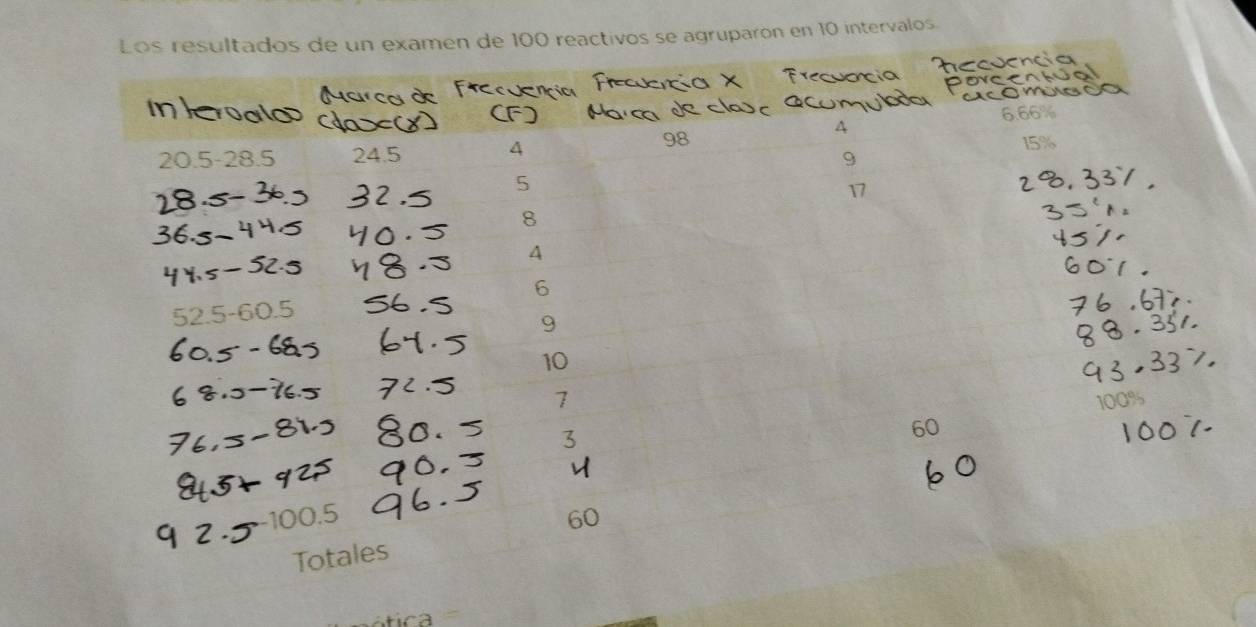 Los resultados de un examen de 100 reactivos se agruparon en 10 intervalos.
Intervalos Marca de clase (x) Frecuencia (F) Frecuencia x Marca de clase Frecuencia acumulada Frecuencia porcentual acomulada
20.5-28.5 24.5 4 98 4 6.66%
28.5-36.5 32.5 5 9 15%
36.5-44.5 40.5 8 17 28.33%.
44.5-52.5 48.5 4 35%.
52.5-60.5 56.5 6 45%.
60.5-68.5 64.5 9 60%.
68.5-76.5 72.5 10 76.67%.
76.5-84.5 80.5 7 88.33%.
84.5-92.5 90.5 3 93.33%.
92.5-100.5 96.5 4 60 100%
Totales 60 60 100%